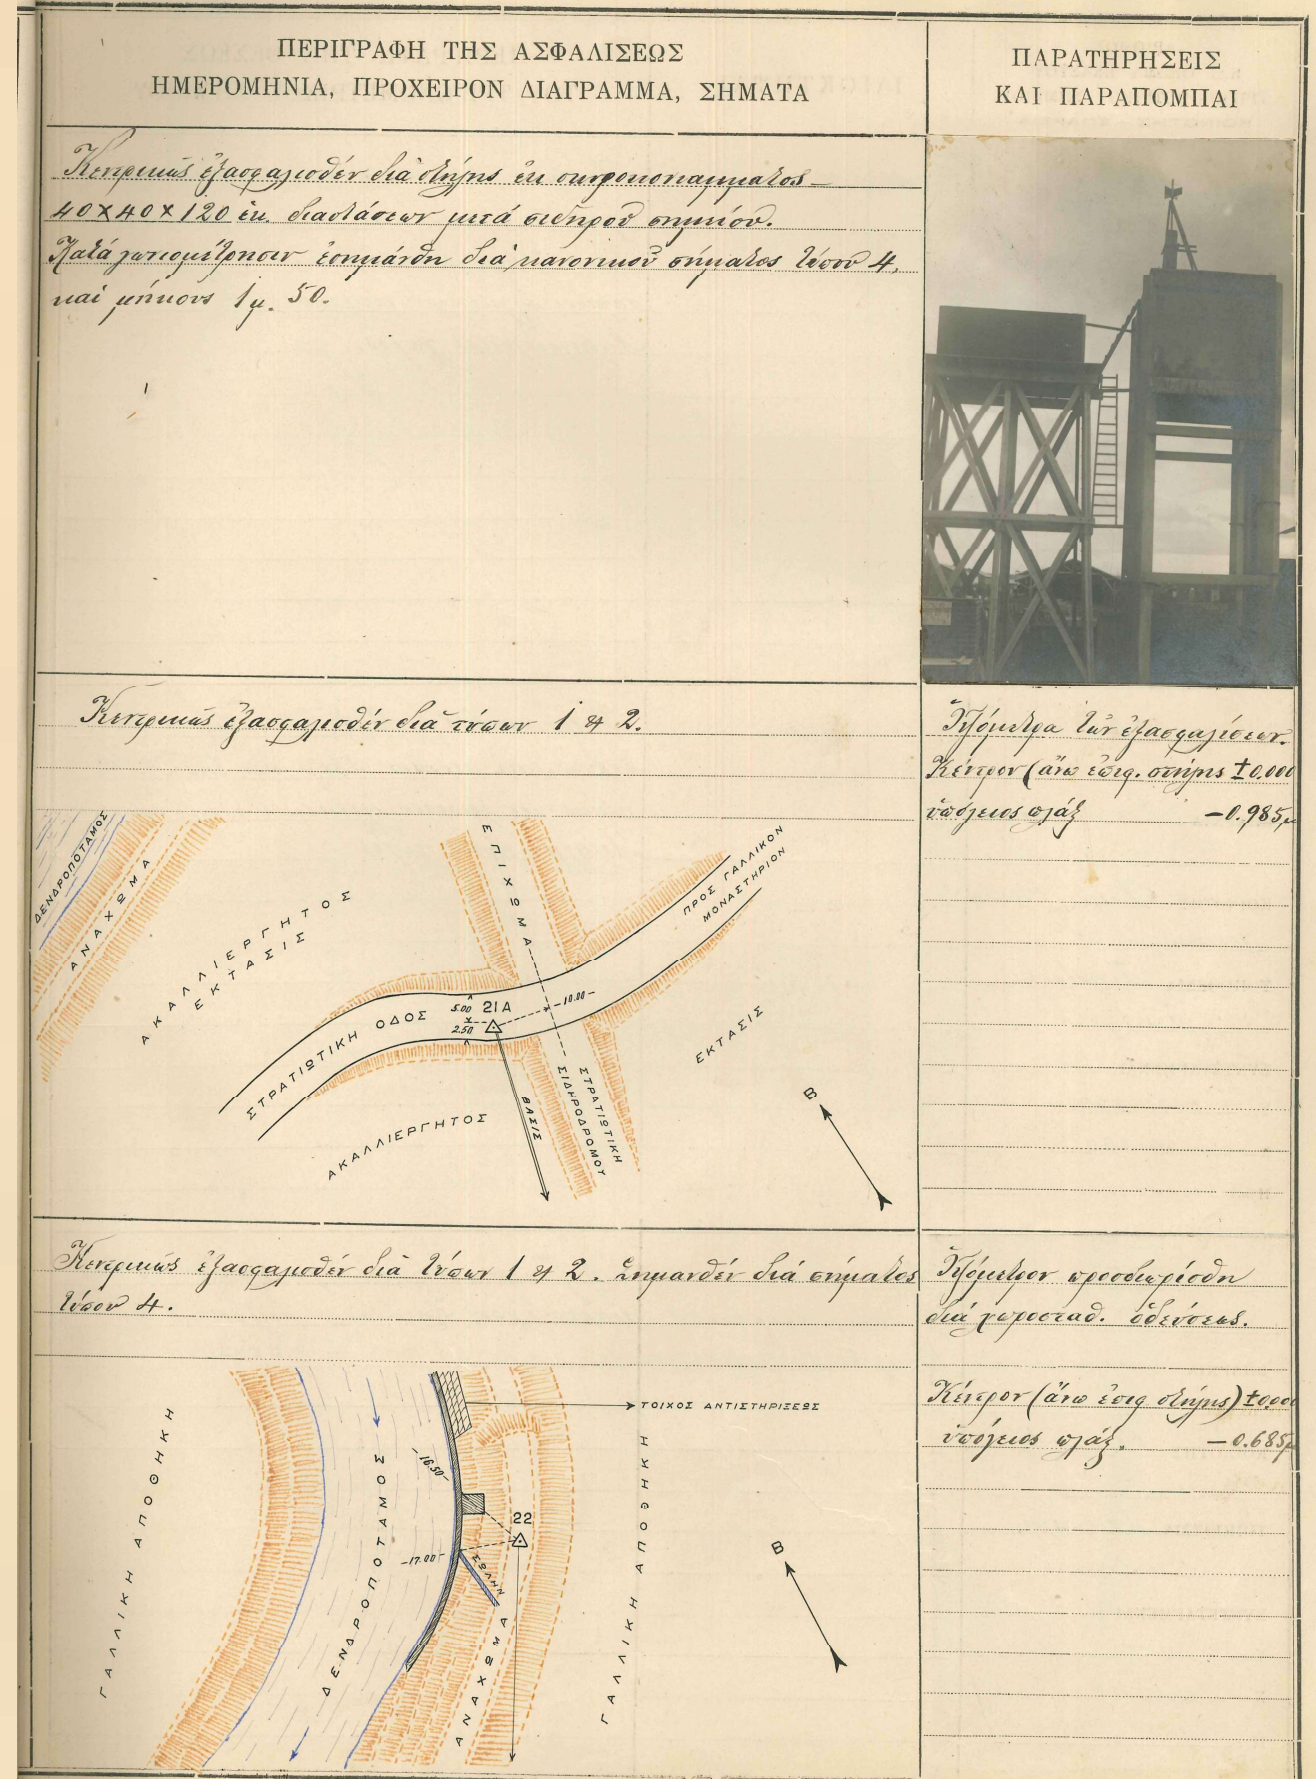 ΠΕΡΙΓΡΑΦΗ ΤΗΣ ΑΣΦΑΛΙΣΕΩΣ
ΗΜΕΡΟΜΗΝΙΑ, ΠΡΟΧΕΙΡΟΝ ΔΙΑΓΡΑΜΜΑ, ΣΗΜΑΤΑ
ΠΑΡΑΤΗΡΗΣΕΙΣ
ΚΑΙ ΠΑΡΑΠΟΜΠΑΙ
Κεντρικῶς ἐξασφαλισθέν διὰ στήλης ἐκ σκυροκονιάματος
40×40×120 ἑκ. διαστάσεων μετά σιδηροῦ σημείου.
Κατά γωνιομέτρησιν ἐσημάνθη διά κανονικοῦ σήματος τύπου 4.
καί μήκους 1μ. 50.
Κεντρικῶς ἐξασφαλισθέν διά τύπων 1 & 2.
Ὑψόμετρα τῶν ἐξασφαλίσεων.
Κέντρον (ἄνω ἐπιφ. στήλης ±0.000
ὑπόγειος πλάξ -0.985μ
ΔΕΝΔΡΟΠΟΤΑΜΟΣ
ΑΝΑΧΩΜΑ
ΑΚΑΛΛΙΕΡΓΗΤΟΣ
ΕΚΤΑΣΙΣ
ΕΠΙΧΩΜΑ
ΠΡΟΣ ΓΑΛΛΙΚΟΝ
ΜΟΝΑΣΤΗΡΙΟΝ
ΣΤΡΑΤΙΩΤΙΚΗ ΟΔΟΣ
5.00
21Α
2.50
-10.00-
ΕΚΤΑΣΙΣ
ΑΚΑΛΛΙΕΡΓΗΤΟΣ
ΒΑΣΙΣ
ΣΤΡΑΤΙΩΤΙΚΗ
ΣΙΔΗΡΟΔΡΟΜΟΥ
Β
Κεντρικῶς ἐξασφαλισθέν διά τύπων 1 & 2. Σημανθέν διά σήματος
τύπου 4.
Ὑψόμετρον προσδιωρίσθη
διά χωροσταθ. ὁδεύσεως.
Κέντρον (ἄνω ἐπιφ στήλης) ±0.000
ὑπόγειος πλάξ. -0.685μ
ΤΟΙΧΟΣ ΑΝΤΙΣΤΗΡΙΞΕΩΣ
ΓΑΛΛΙΚΗ ΑΠΟΘΗΚΗ
ΔΕΝΔΡΟΠΟΤΑΜΟΣ
-16.50-
22
-17.00-
ΣΩΛΗΝ
ΑΝΑΧΩΜΑ
ΓΑΛΛΙΚΗ ΑΠΟΘΗΚΗ
Β